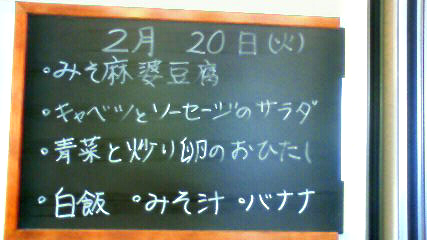 2月 20日(火)
・みそ麻婆豆腐
・キャベツとソーセージのサラダ
・青菜と炒り卵のおひたし
・白飯 ・みそ汁 ・バナナ